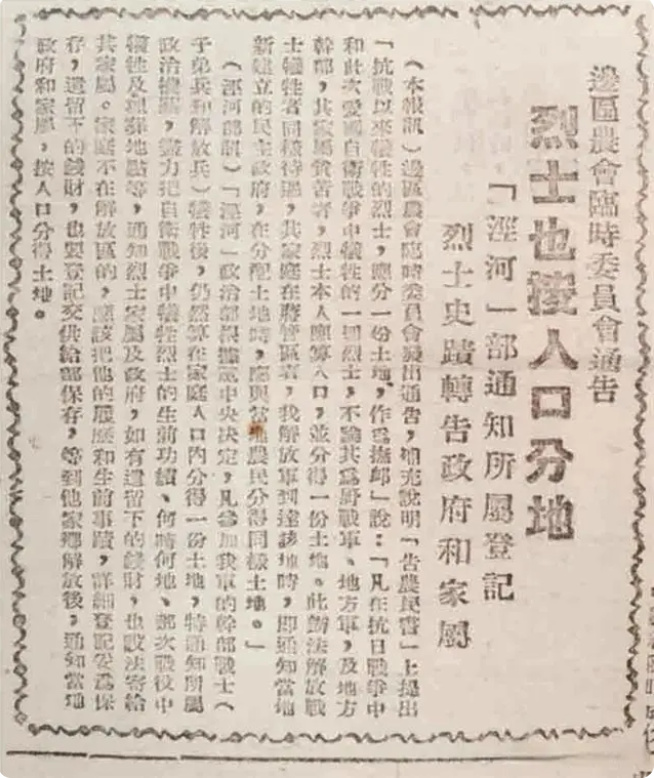 邊區農會臨時委員會通告
烈士也按人口分地
「涇河」部通知所屬登記
烈士史蹟轉告政府和家屬
（本報訊）邊區農會臨時委員會發出通告，補充說明「告農民書」上提出
「抗戰以來犧牲的烈士，應分一份土地，作爲撫卹」說：「凡在抗日戰爭中
和此次愛國自衛戰爭中犧牲的一切烈士，不論其爲野戰軍、地方軍，及地方
幹部，其家屬貧苦者，烈士本人應算人口，並分得一份土地。此辦法解放戰
士犧牲者同樣待遇，其家庭在蔣管區者，我解放軍到達該地時，即通知當地
新建立的民主政府，在分配土地時，應與當地農民分得同樣土地。」
（涇河部訊）「涇河」政治部根據黨中央決定，凡參加我軍的幹部戰士（
子弟兵和解放兵）犧牲後，仍然算在家庭人口內分得一份土地，特通知所屬
政治機關，盡力把自衛戰爭中犧牲烈士的生前功績、何時何地、部次戰役中
犧牲及埋葬地點等，通知烈士家屬及政府，如有遺留下的錢財，也設法寄給
其家屬。家庭不在解放區的，應該把他的履歷和生前事蹟，詳細登記妥爲保
存，遺留下的錢財，也要登記交供給部保存，等到他家鄉解放後，通知當地
政府和家屬，按人口分得土地。